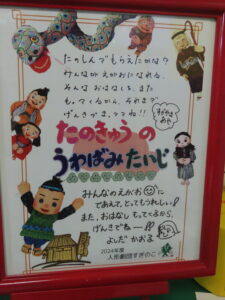 たのしんでもらえたかな？
みんながえがおになれる、
そんなおはなしを、また
もってくるから、それまで
げんきでまっててね!!
たのきゅうの
うわばみたいじ
みんなのえがお
にであえて、とってもうれしい！
また、おはなしもってくるから、
げんきでねー!!
よしだかおる
2024年度
人形劇団すぎのこ